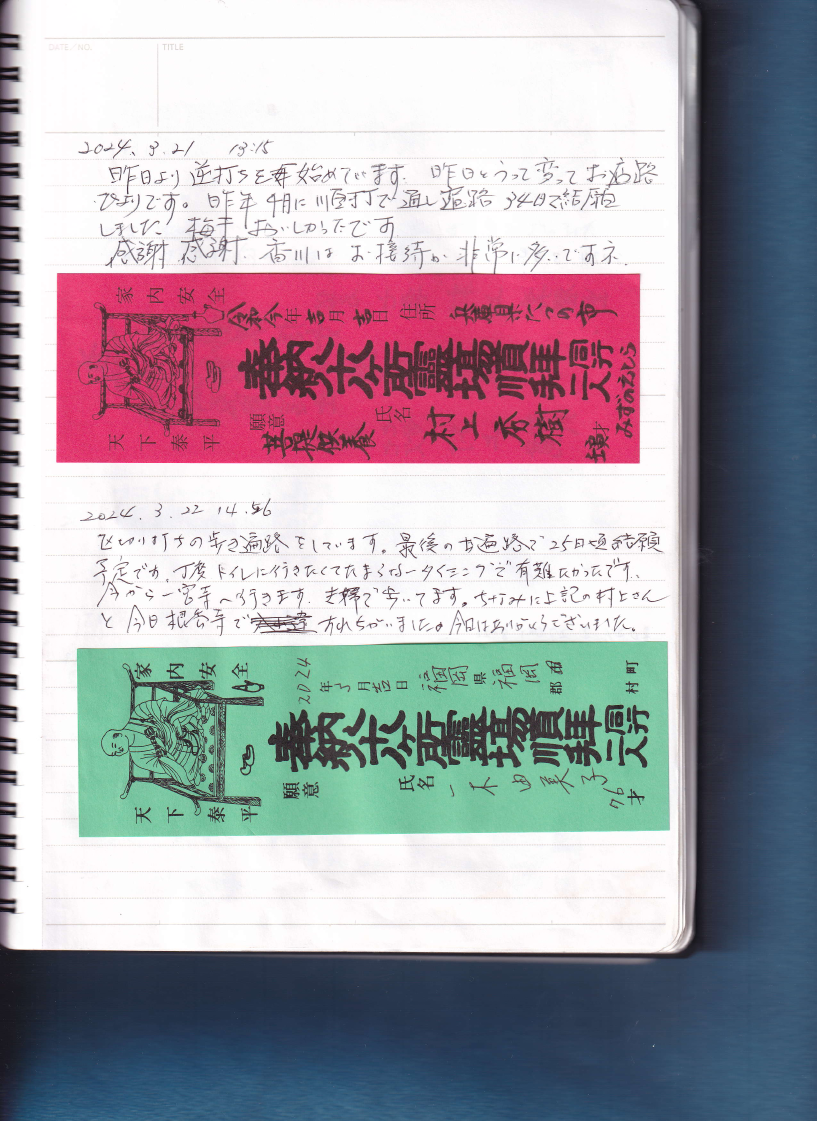 DATE/NO.
TITLE
2024. 3.21 13:15
昨日より逆打ちを再始めています. 昨日とうって変ってお遍路
びよりです。昨年4月に順打で通し遍路 34日で結願
しました 梅干 おいしかったです
感謝 感謝. 香川は お接待が 非常に多いですネ.
家内安全
天下泰平
令和今年吉月吉日 住所 兵庫県たつの市
奉納八十八ヶ所霊場順拝 同行二人
願意 菩提供養 氏名 村上 秀樹
才 みずのえとら
2024. 3. 22 14.56
区切り打ちの歩き遍路をしています。最後のお遍路で25日頃結願
予定です。丁度トイレに行きたくてたまらなータイミングで有難たかったです、
今から一宮寺へ行きます. 夫婦で歩いてます。ちなみに上記の村上さん
と 今日根香寺で すれちがいました。今日はありがとうございました。
家内安全
天下泰平
2024年3月吉日 福岡県福岡市郡 町村
奉納八十八ヶ所霊場順拝 同行二人
願意 氏名 一木 由美子 76才